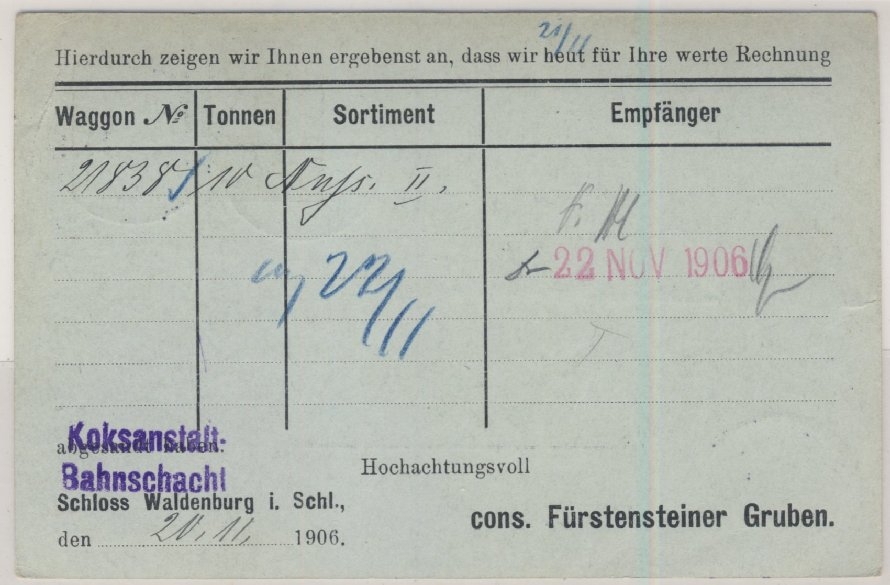 21/11
Hierdurch zeigen wir Ihnen ergebenst an, dass wir heut für Ihre werte Rechnung
Waggon № Tonnen Sortiment Empfänger
21838 10 Nuss. II.
22/11
22 NOV 1906
Koksanstalt-
abgesandt haben.
Bahnschacht
Hochachtungsvoll
Schloss Waldenburg i. Schl.,
cons. Fürstensteiner Gruben.
den 20.11. 1906.